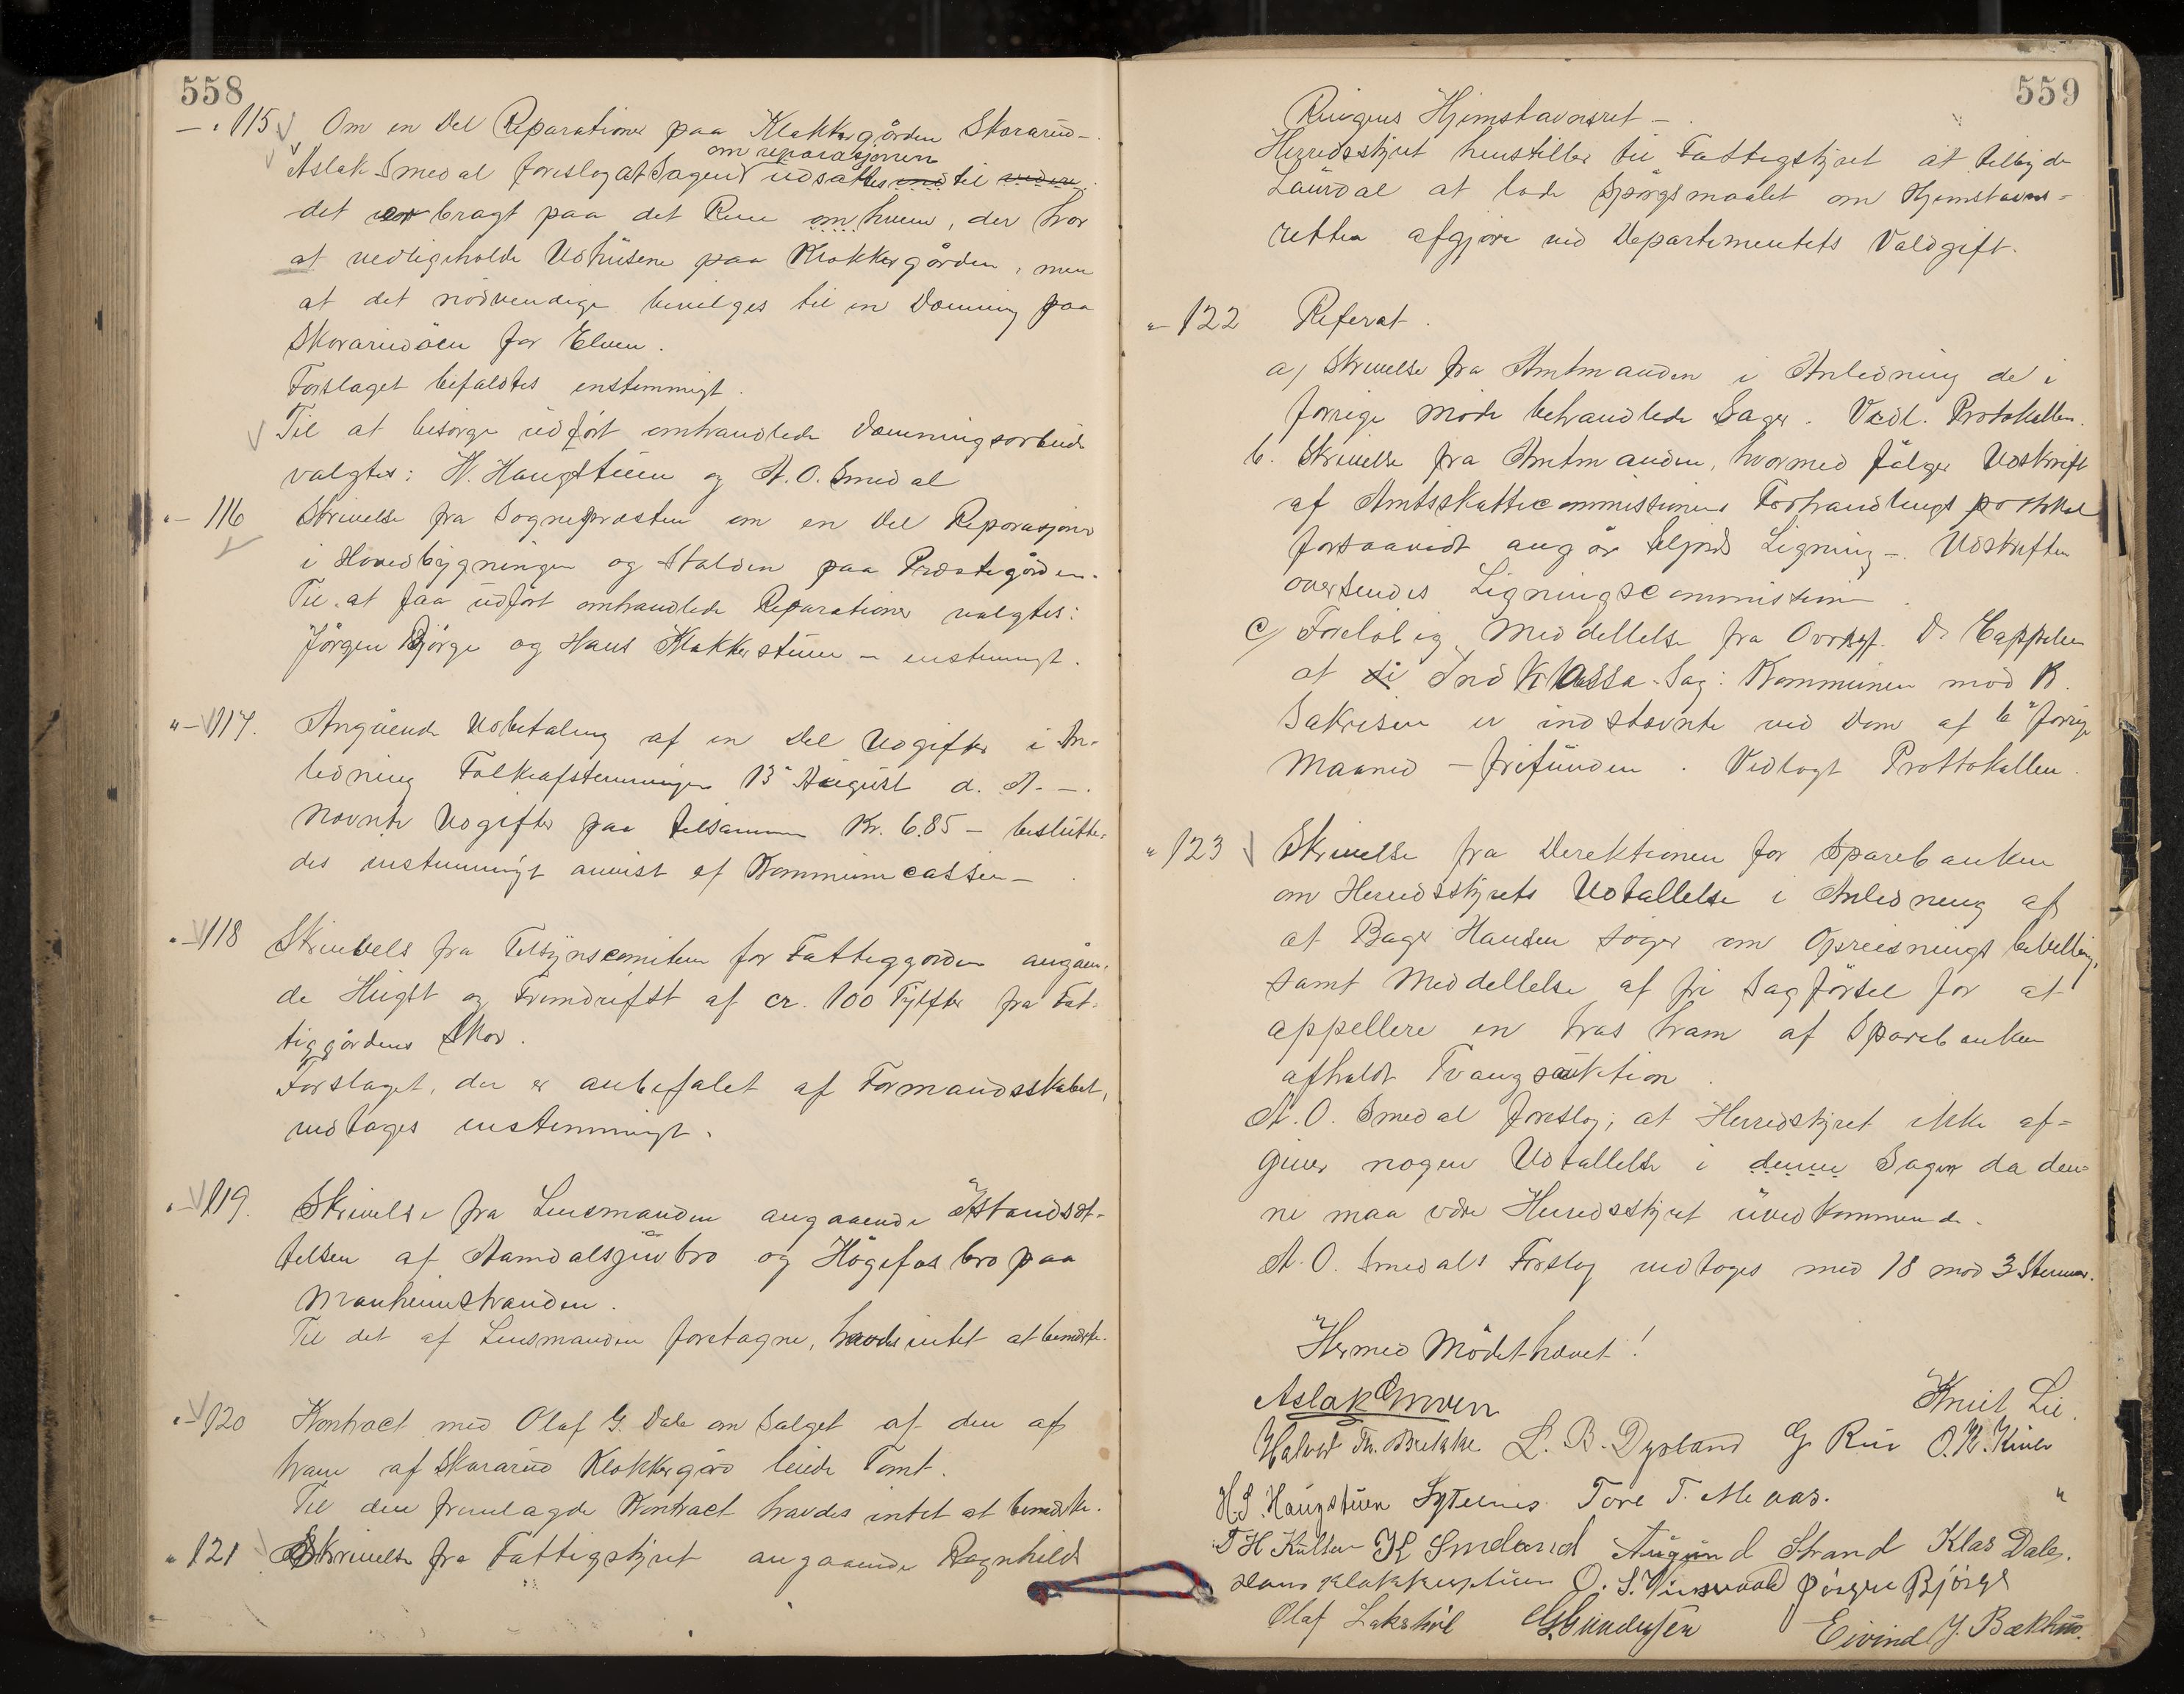 558
— " 115 Om en Del Reparationer paa Klokkergården Skorarud —.
om reparasjonen
Aslak Smedal foreslog at Sagen udsattes ind til videre
det var bragt paa det Rene om hvem, der har
at vedligeholde Udhusene paa Klokkergården, men
at det nødvendige bevilges til en Dæmning paa
Skorarudøen for Elven.
Forslaget bifaldtes enstemmigt.
Til at besørge udført omhandlede Dæmningsarbeide
valgtes: H. Haugstuen og A. O. Smedal
" — 116 Skrivelse fra Sognepræsten om en Del Reparasjoner
i Hovedbygningen og Stalden paa Præstegården.
Til at faa udført omhandlede Reparationer valgtes:
Jørgen Bjørge og Hans Klokkerstuen — enstemmigt.
" — 117. Angående Udbetaling af en Del Udgifter i An-
ledning Folkeafstemningen 13 August d. A. —.
Nævnte Udgifter paa tilsammen Kr. 6.85 — beslutte-
des enstemmigt anvist af Kommunecassen —
" — 118 Skrivels fra Tilsynscomiteen for Fattiggården angåen-
de Hugst og Fremdrift af cr. 100 Tylfter fra Fat-
tiggårdens Skov.
Forslaget, der er anbefalet af Formandsskabet,
vedtoges enstemmigt.
" — 119. Skrivelse fra Lensmanden angaaende Istandsæt-
telsen af Aamdalsgjuv bro og Högefos bro paa
Manheimstranden.
Til det af Lensmanden foretagne, havdes intet at bemærke.
" — 120 Kontract med Olaf G. Dale om Salget af den af
ham af Skorarud Klokkergård leiede Tomt.
Til den fremlagde Kontract havdes intet at bemærke.
" 121 Skrivelse fra Fattigstyret angaaende Ragnhild
559
Ringens Hjemstavnsret —.
Herredsstyret henstiller til Fattigstyret at tilbyde
Laurdal at lade Spørgsmaalet om Hjemstavns-
retten afgjøre ved Departementets Voldgift.
" — 122 Referat.
a) Skrivelse fra Amtmanden i Anledning de i
forrige møde behandlede Sager. Vedl. Protokollen.
b. Skrivelse fra Amtmanden, hvormed følger Udskrift
af Amtsskattecommissionens Forhandlings protokol
forsaavidt angår Seljords Ligning —. Udskriften
oversendes Ligningscommissionen.
c) Foreløbig Meddellelse fra Ovrrsgf. D. Cappelen
at i Indkassa-Sag: Kommunen mod K.
Sakrisen er indstævnte ved Dom af 6 forrige
Maaned — frifunden. Vedlagt Prottokollen.
" 123 Skrivelse fra Direktionen for Sparebanken
om Herredsstyrets Udtallelse i Anledning af
at Bager Hansen søger om Opreisnings bevilling,
samt Meddellelse af fri Sagførsel for at
appellere en hos ham af Sparebanken
afholdt Tvangsauktion.
A. O. Smedal foreslog, at Herredstyret ikke af-
giver nogen Udtallelse i denne Sagen da den-
ne maa være Herredsstyret uvedkommende.
A. O. Smedals Forslag vedtoges med 18 mod 3 Stemmer.
Hermed Mødet hævet!
Aslak Knut Lie.
Halvor Th. Brekke L. B. Dyrland G Rui O. K.
H. S. Haugstuen Tore T. Moaas.
K Smeland Augund Strand Klas Dale.
Hans Klokkerstuen O. S. Jørgen Bjørge
Olaf Lakshöl G. Gundersen Eivind J. Bækhus.